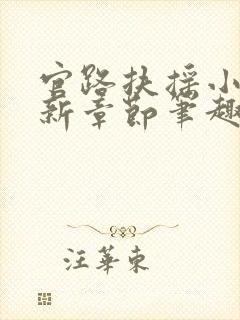 官路扶摇小
新章節筆趣
汪華東